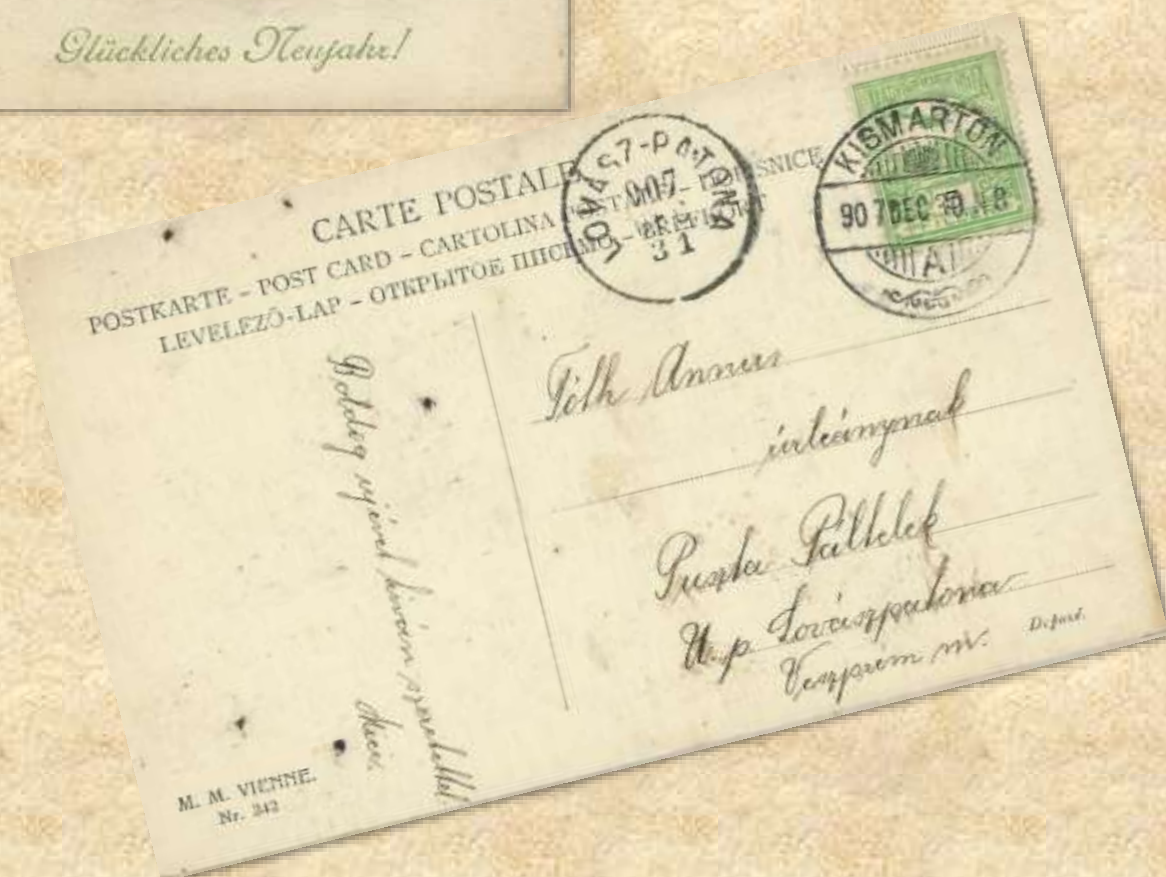 Glückliches Neujahr!
CARTE POSTALE
POSTKARTE – POST CARD – CARTOLINA
LEVELEZŐ-LAP – ОТКРЫТОЕ ПИСЬМО – BREFKORT
LOVÁSZ-PATONA
907
31
KISMARTON
907 DEC
A
Boldog ujévet kíván szeretettel
Tóth Annus
úrleánynak
Puszta Páltelek
U. p. Lovászpatona
Veszprém m.
Deposé.
M. M. VIENNE.
Nr. 242